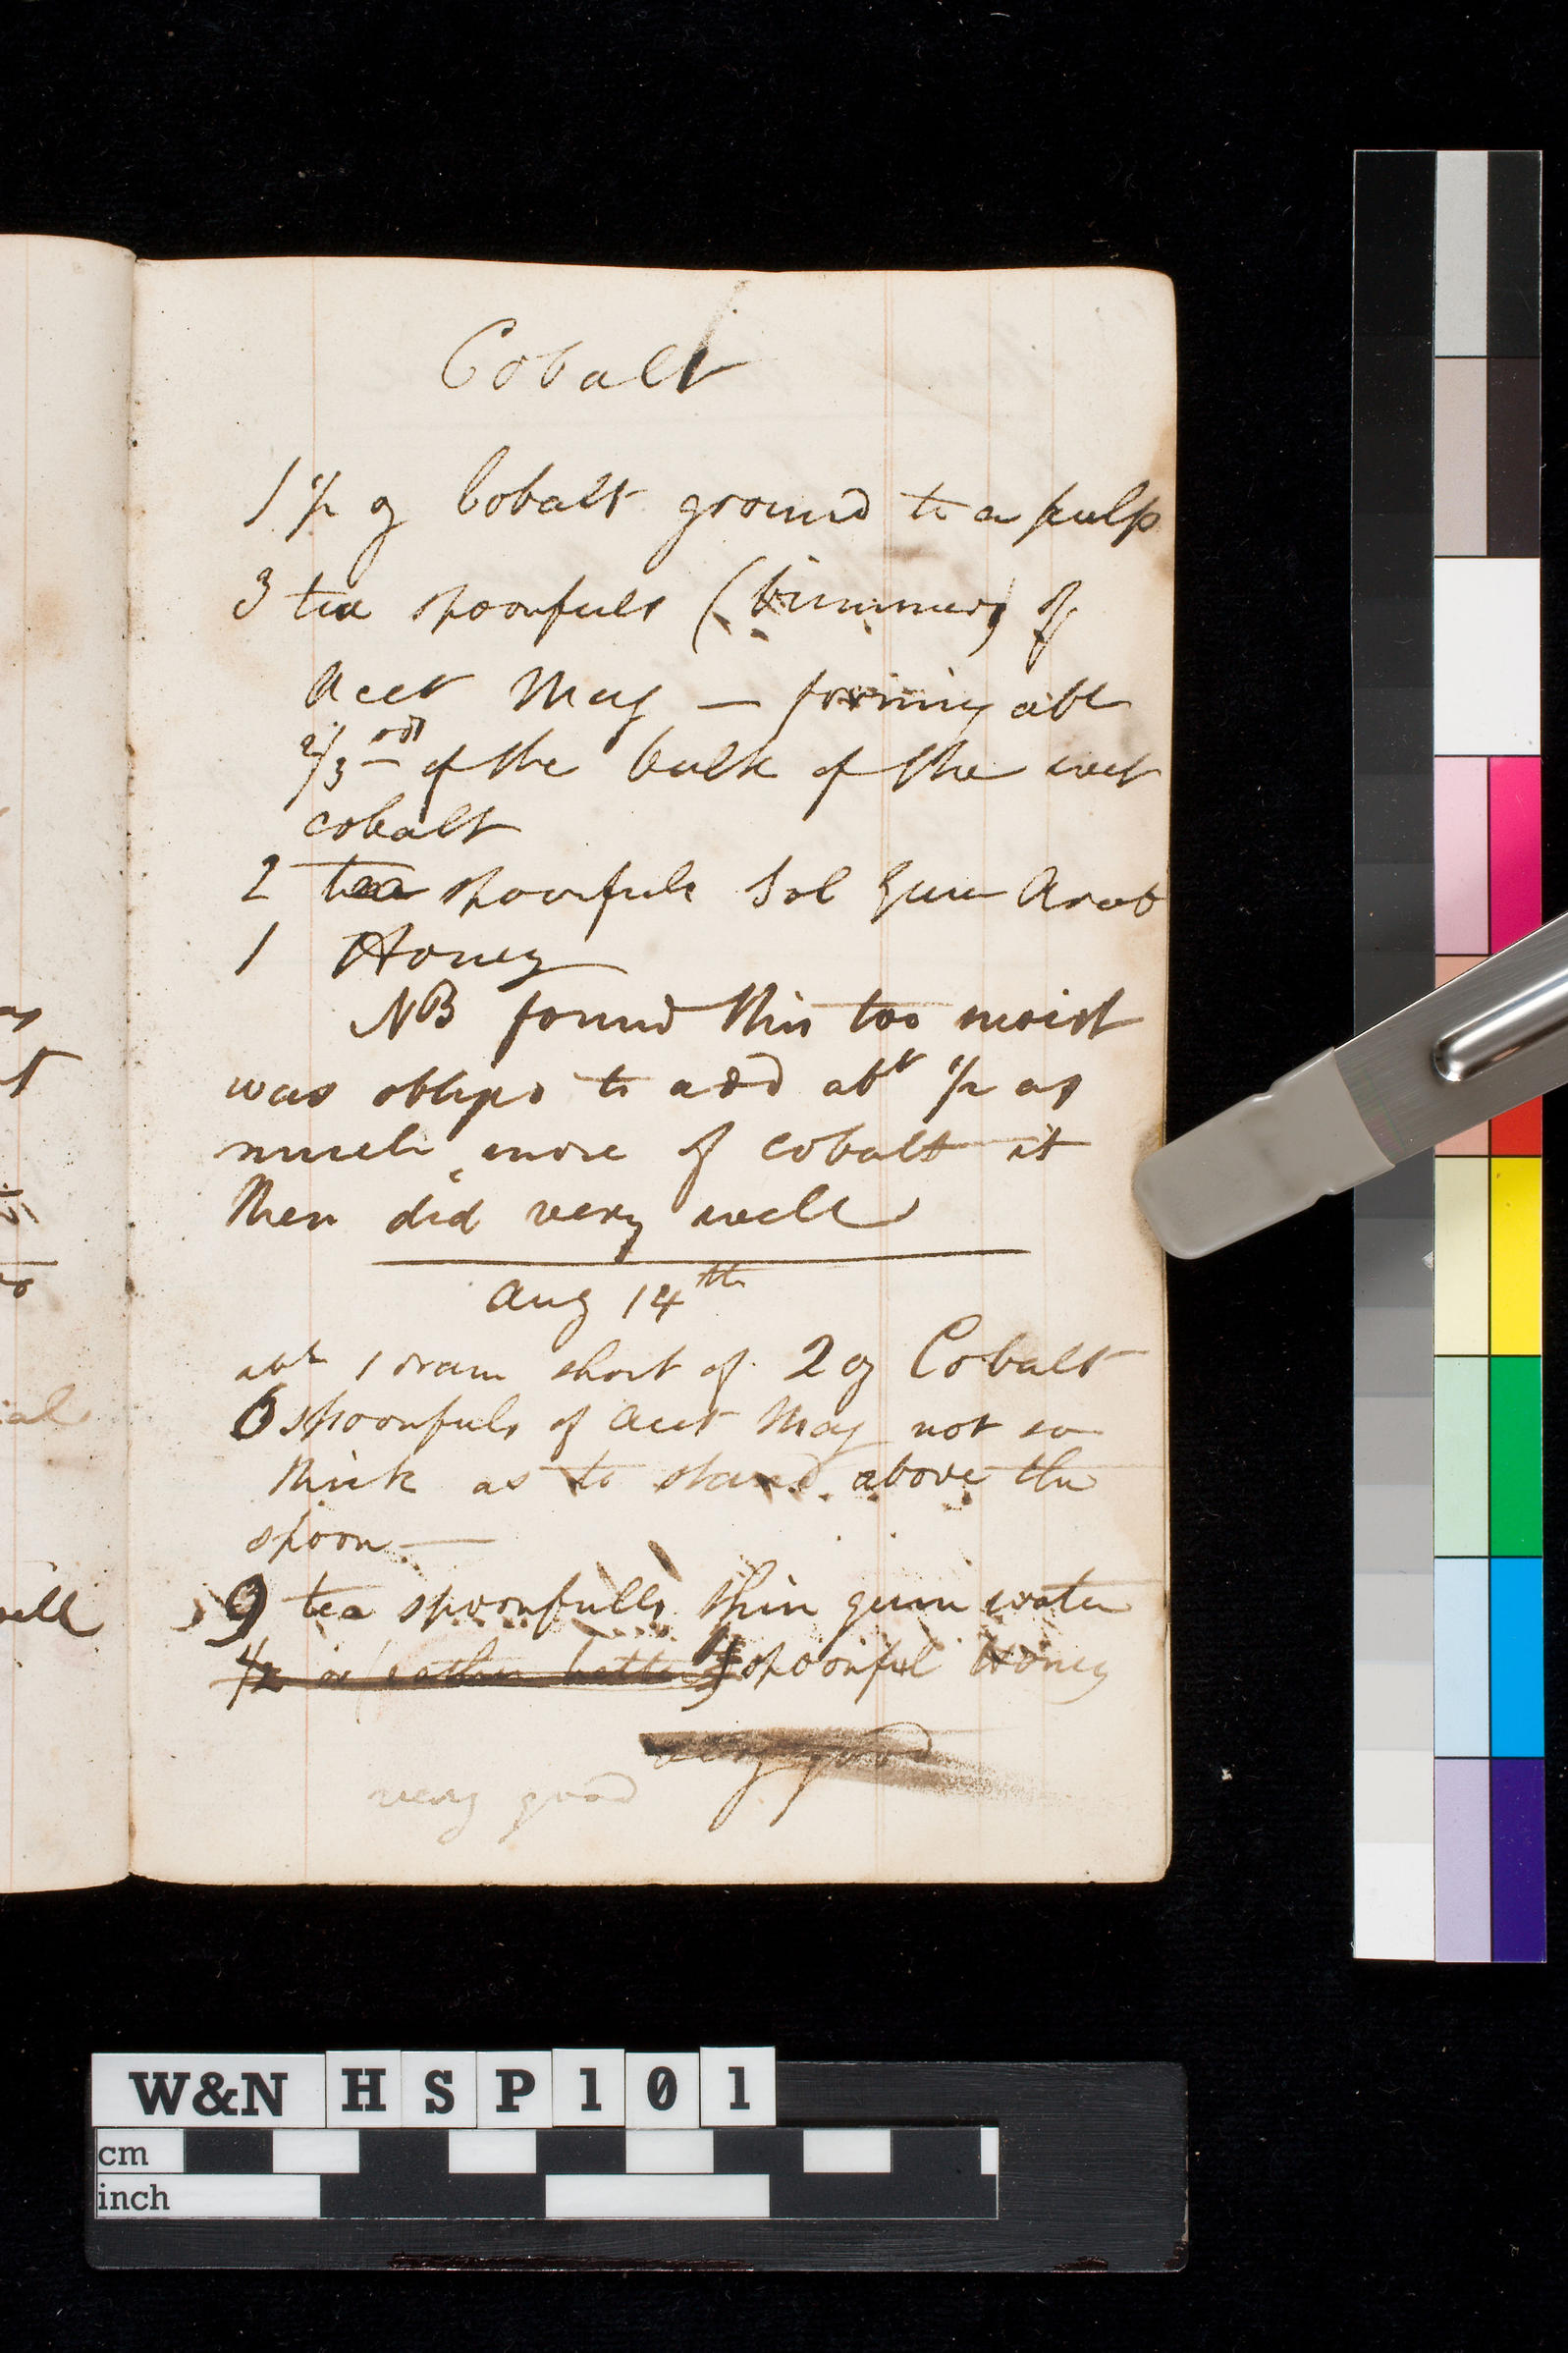 Cobalt
1 1/2 oz Cobalt ground to a pulp
3 tea spoonfuls (brimmers) of
Acet Mag — forming abt
2/3rds of the bulk of the wet
cobalt
2 tea spoonfuls Sol Gum Arab
1 Honey
NB found this too moist
was obliged to add abt 1/2 as
much more of cobalt it
then did very well
Aug 14th
abt 1 dram short of 2 oz Cobalt
6 spoonfuls of Acet Mag not so
thick as to stand above the
spoon —
9 tea spoonfulls thin gum water
1/2 or (rather better) spoonful Honey
very good
very good
as
t
ial
well
W&N HSP101
cm
inch